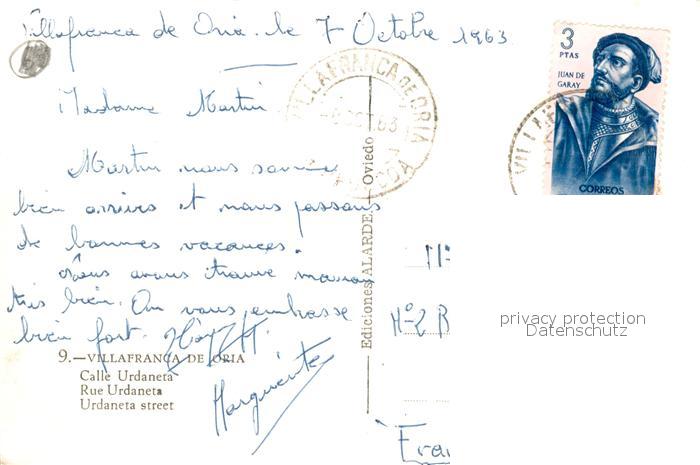 Villafranca de Oria. le 7 Octobre 1963
Madame Martin.
3
PTAS
JUAN DE
GARAY
CORREOS
VILLAFRANCA DE ORIA
OCT 63
Martin nous sommes
bien arrivés et nous passons
de bonnes vacances.
Nous avons trouvé maman
très bien. On vous embrasse
bien fort.
Marguerite
9.—VILLAFRANCA DE ORIA
Calle Urdaneta
Rue Urdaneta
Urdaneta street
Ediciones ALARDE.—Oviedo
Nº2 B
Fra
privacy protection
Datenschutz